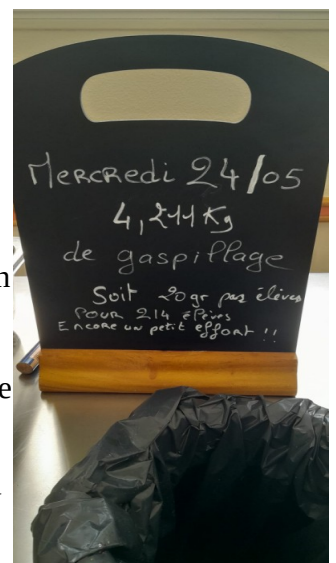 Mercredi 24/05
4,211 Kg
de gaspillage
Soit 20 gr par élèves
Pour 214 élèves
Encore un petit effort !!